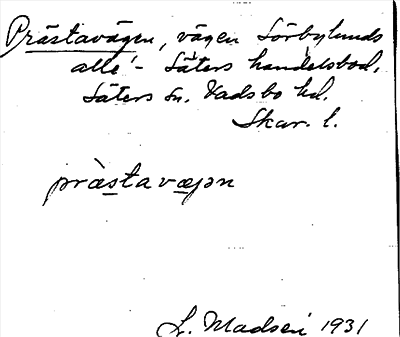 Prästavägen, vägen Sörbylunds
allé - Säters handelsbod,
Säters sn. Vadsbo hd.
Skar. l.
præstavægen
L. Madsen 1931